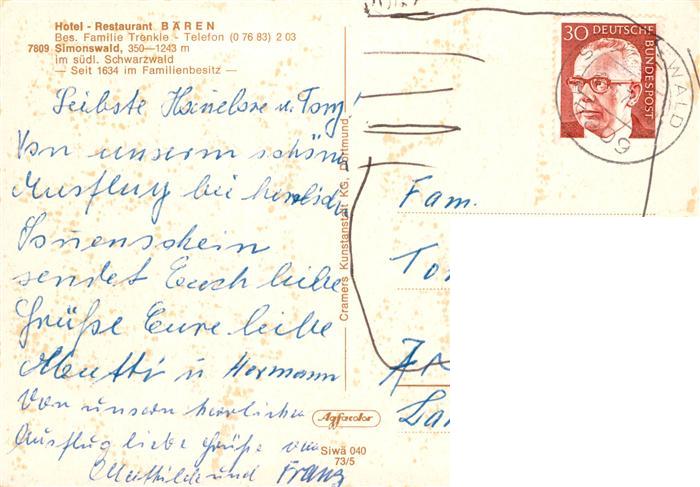 Hotel - Restaurant BÄREN
Bes. Familie Trenkle - Telefon (0 76 83) 2 03
7809 Simonswald, 350—1243 m
im südl. Schwarzwald
— Seit 1634 im Familienbesitz —
Liebste Hanelore u. Tony!
Von unserm schönen
Ausflug bei herrlich
Sonenschein
sendet Euch liebe
Grüße Eure liebe
Mutti u Hermann
Von unsern herrlichen
Ausflug liebe Grüße von
Mathilde und Franz
Cramers Kunstanstalt KG, Dortmund
Agfacolor
Siwä 040
73/5
30 DEUTSCHE BUNDESPOST
SIMONSWALD
7809
Fam.